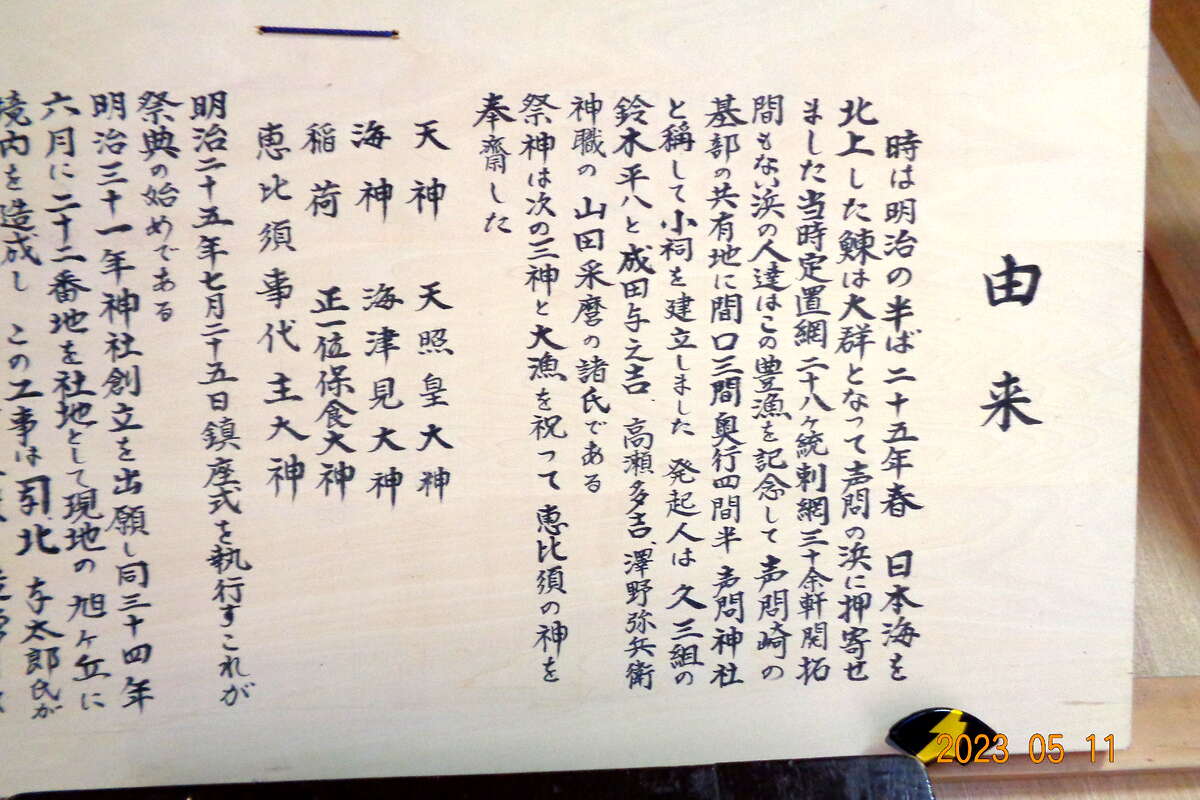 由来
時は明治の半ば二十五年春 日本海を
北上した鰊は大群となって声問の浜に押寄せ
ました当時定置網二十八ヶ統刺網三十余軒開拓
間もない浜の人達はこの豊漁を記念して声問崎の
基部の共有地に間口三間奥行四間半 声問神社
と稱して小祠を建立しました 発起人は 久三組の
鈴木平八と成田与之吉、高瀬多吉、澤野弥兵衛
神職の 山田采麿の諸氏である
祭神は次の三神と大漁を祝って 恵比須の神を
奉齋した
天神 天照皇大神
海神 海津見大神
稲荷 正一位保食大神
恵比須事代主大神
明治二十五年七月二十五日鎮座式を執行すこれが
祭典の始めである
明治三十一年神社創立を出願し同三十四年
六月に二十二番地を社地として現地の旭ヶ丘に
境内を造成し この工事は 太郎氏が
2023 05 11